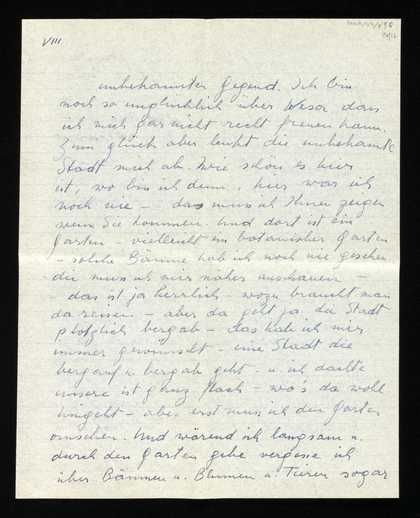 VIII
unbekannten Gegend. Ich bin
noch so unglücklich über Wesor dass
ich mich gar nicht recht freuen kann.
Zum glück aber lenkt die unbekannte
Stadt mich ab. Wie schön es hier
ist, wo bin ich denn, hier war ich
noch nie – das muss ich Ihnen zeigen
wenn Sie kommen. Und dort ist ein
Garten – vielleicht ein botanischer Garten
– solche Bäume hab ich noch nie gesehen
die muss ich mir näher anschauen –
– das ist ja herrlich – wozu braucht man
da reisen – aber da geht ja die Stadt
plötzlich bergab – das hab ich mir
immer gewünscht – eine Stadt die
bergauf u. bergab geht – u. ich dachte
unsere ist ganz flach – wo's da wohl
hingeht – aber erst muss ich den Garten
ansehen. Und wärend ich langsam u.
durch den Garten gehe vergesse ich
über Bäumen u. Blumen u. Tieren sogar